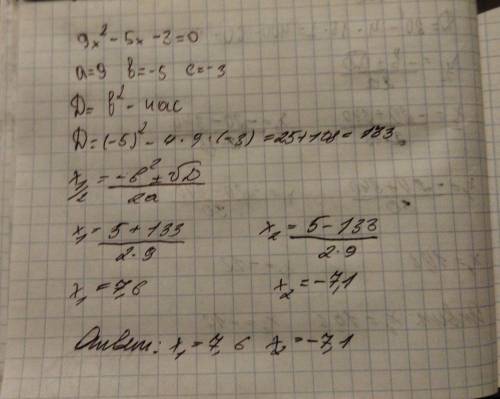 9x² - 5x - 2 = 0
a=9 b=-5 c=-3
D= b² - 4ac
D=(-5)² - 4·9·(-3) =25+108= 133
x₁/₂ = (-b² ± √D)/2a
x₁ = (5+133)/(2·9) x₂ = (5-133)/(2·9)
x₁ = 7,6 x₂ = -7,1
Ответ: x₁ = 7,6 x₂ = -7,1